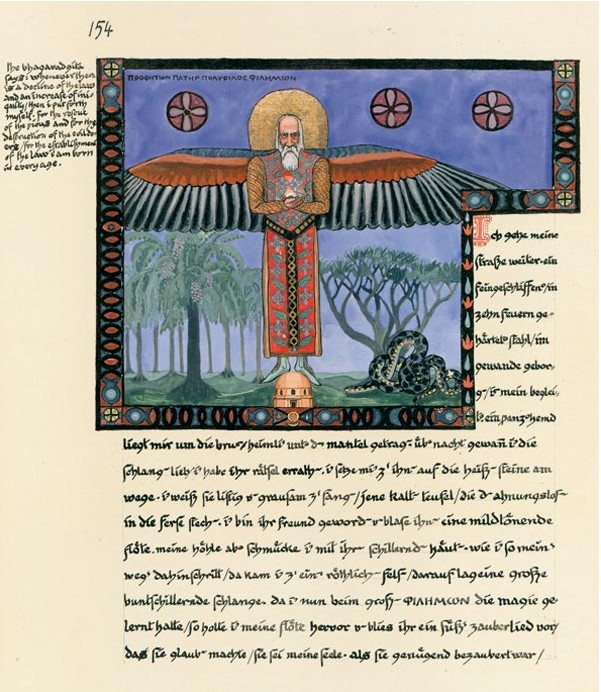 154
the bhagavadgita
says: whenever there
is a decline of the law
and an increase of ini-
quity/then i put forth
myself. for the rescue
of the pious and for the
destruction of the evildo-
ers/for the establishment
of the law i am born
in every age.
ΠΡΟΦΗΤΩΝ ΠΑΤΗΡ ΠΟΛΥΦΙΛΟΣ ΦΙΛΗΜΩΝ
Ich gehe meine
straße weiter. ein
feingeschliffen/in
zehn feuern ge-
härtet stahl/im
gewande gebor-
g/ist mein beglei-
t. ein panzerhemd
liegt mir um die brust/heimli unt d mantel getrag. üb nacht gewañ i die
schlang lieb/i habe ihr rätsel errath. i setze mi z' ihn auf die heiß steine am
wege. i weiß sie listig u grausam z' fang/jene kalt teufel/die d ahnungslos
in die ferse stech. i bin ihr freund geword u blase ihn eine mildtönende
flöte. meine höhle ab schmücke i mit ihr schillernd häut. wie i so mein
weg dahinschritt/da kam i z' ein röthlich fels/darauf lag eine große
buntschillernde schlange. da i nun beim groß ΦΙΛΗΜΩΝ die magie ge-
lernt hatte/so holte i meine flöte hervor u blies ihr ein süß zauberlied vor/
das sie glaub machte/sie sei meine seele. als sie genügend bezaubert war/